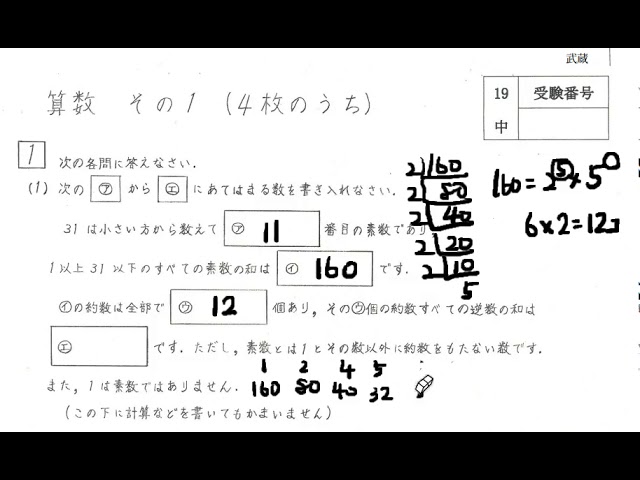 武蔵
算数 その1 (4枚のうち)
19 受験番号
中
1 次の各問に答えなさい.
(1) 次の ㋐ から ㋓ にあてはまる数を書き入れなさい.
31は小さい方から数えて ㋐ 11 番目の素数であり
1以上31以下のすべての素数の和は ㋑ 160 です.
㋑の約数は全部で ㋒ 12 個あり, その㋒個の約数すべての逆数の和は
㋓ です. ただし, 素数とは1とその数以外に約数をもたない数です.
また, 1は素数ではありません.
(この下に計算などを書いてもかまいません)
1 2 4 5
160 80 40 32
2)160
2)80
2)40
2)20
2)10
5
160=2⁵×5
6×2=12コ